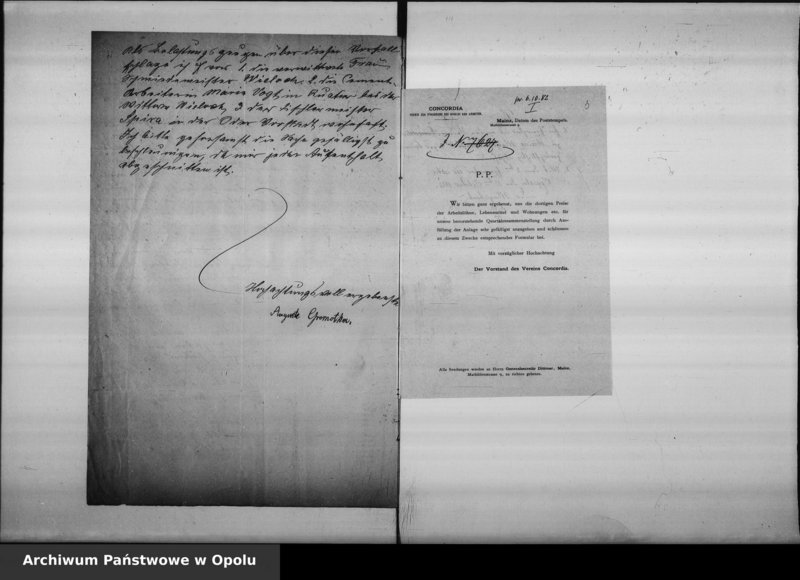 Als Belastungszeugen über diesen Vorfall
schlage ich vor 1. die verwittwete Frau
Schmiedemeister 2. die Cement-
arbeiterin Maria Vogt in bei der
Wittwe 3 der Tischlermeister
Spira in der Oder Vorstadt wohnhaft.
Ich bitte gehorsamst die Sache gefälligst zu
beschleunigen, da mir jeder Aufenthalt
abgeschnitten ist.
Hochachtungsvoll ergebenst
Gromotka.
pr. 6.10.82
I
5
CONCORDIA
VEREIN ZUR FÖRDERUNG DES WOHLES DER ARBEITER.
Mainz, Datum des Poststempels.
J. No
P. P.
Wir bitten ganz ergebenst, uns die dortigen Preise
der Arbeitslöhne, Lebensmittel und Wohnungen etc. für
unsere bevorstehende Quartalzusammenstellung durch Aus-
füllung der Anlage sehr gefälligst anzugeben und schliessen
zu diesem Zwecke entsprechendes Formular bei.
Mit vorzüglicher Hochachtung
Der Vorstand des Vereins Concordia.
Alle Sendungen werden an Herrn Generalsecretär Dittmar, Mainz,
zu richten gebeten.
Archiwum Państwowe w Opolu